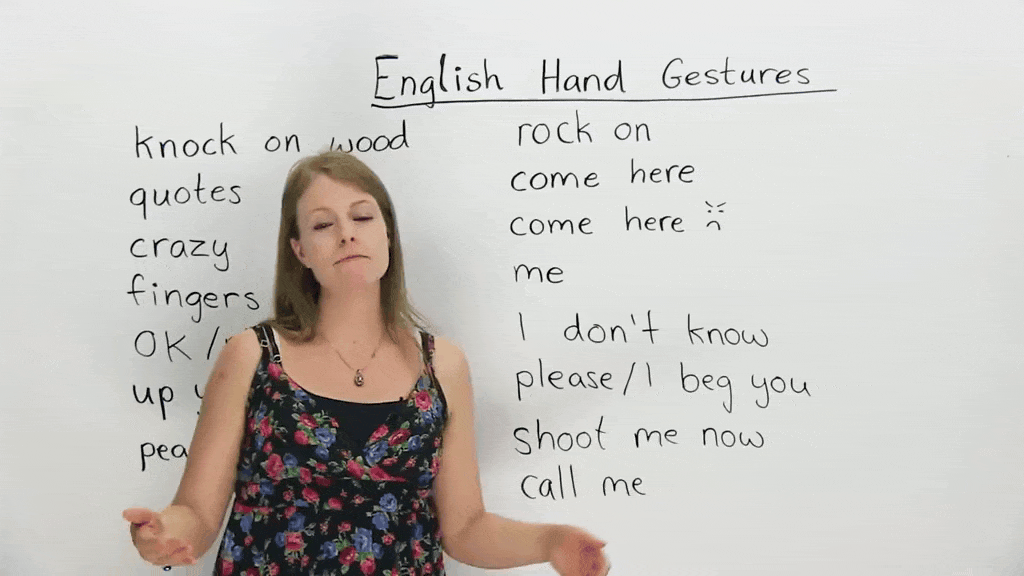 English Hand Gestures
knock on wood
quotes
crazy
fingers
OK /
up
rock on
come here
come here
me
I don't know
please/I beg you
shoot me now
call me